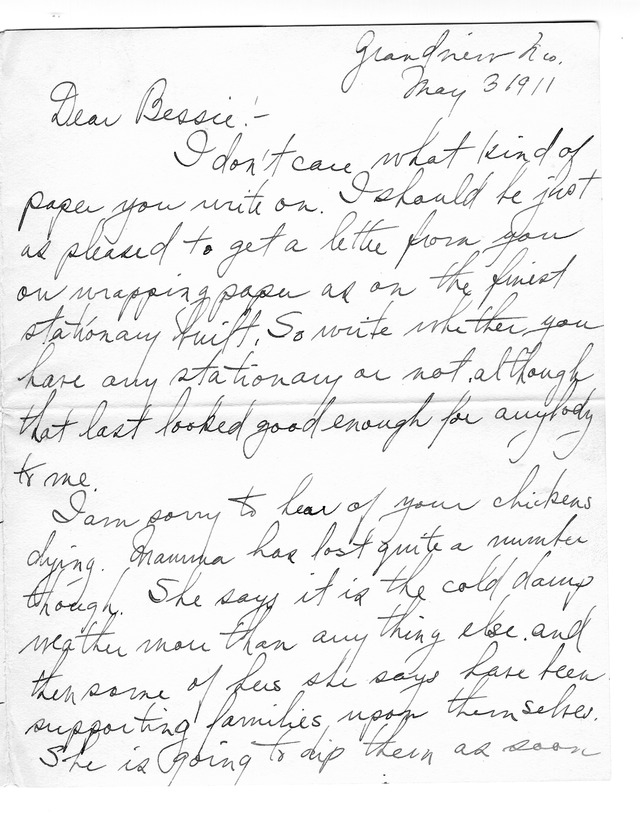 Grandview Mo.
May 3 1911
Dear Bessie:-
I don't care what kind of
paper you write on. I should be just
as pleased to get a letter from you
on wrapping paper as on the finest
stationary built. So write whether you
have any stationary or not, although
that last looked good enough for anybody
to me.
I am sorry to hear of your chickens
dying. Mamma has lost quite a number
though. She says it is the cold damp
weather more than any thing else. and
then some of hers she says have been
supporting families upon themselves.
She is going to dip them as soon